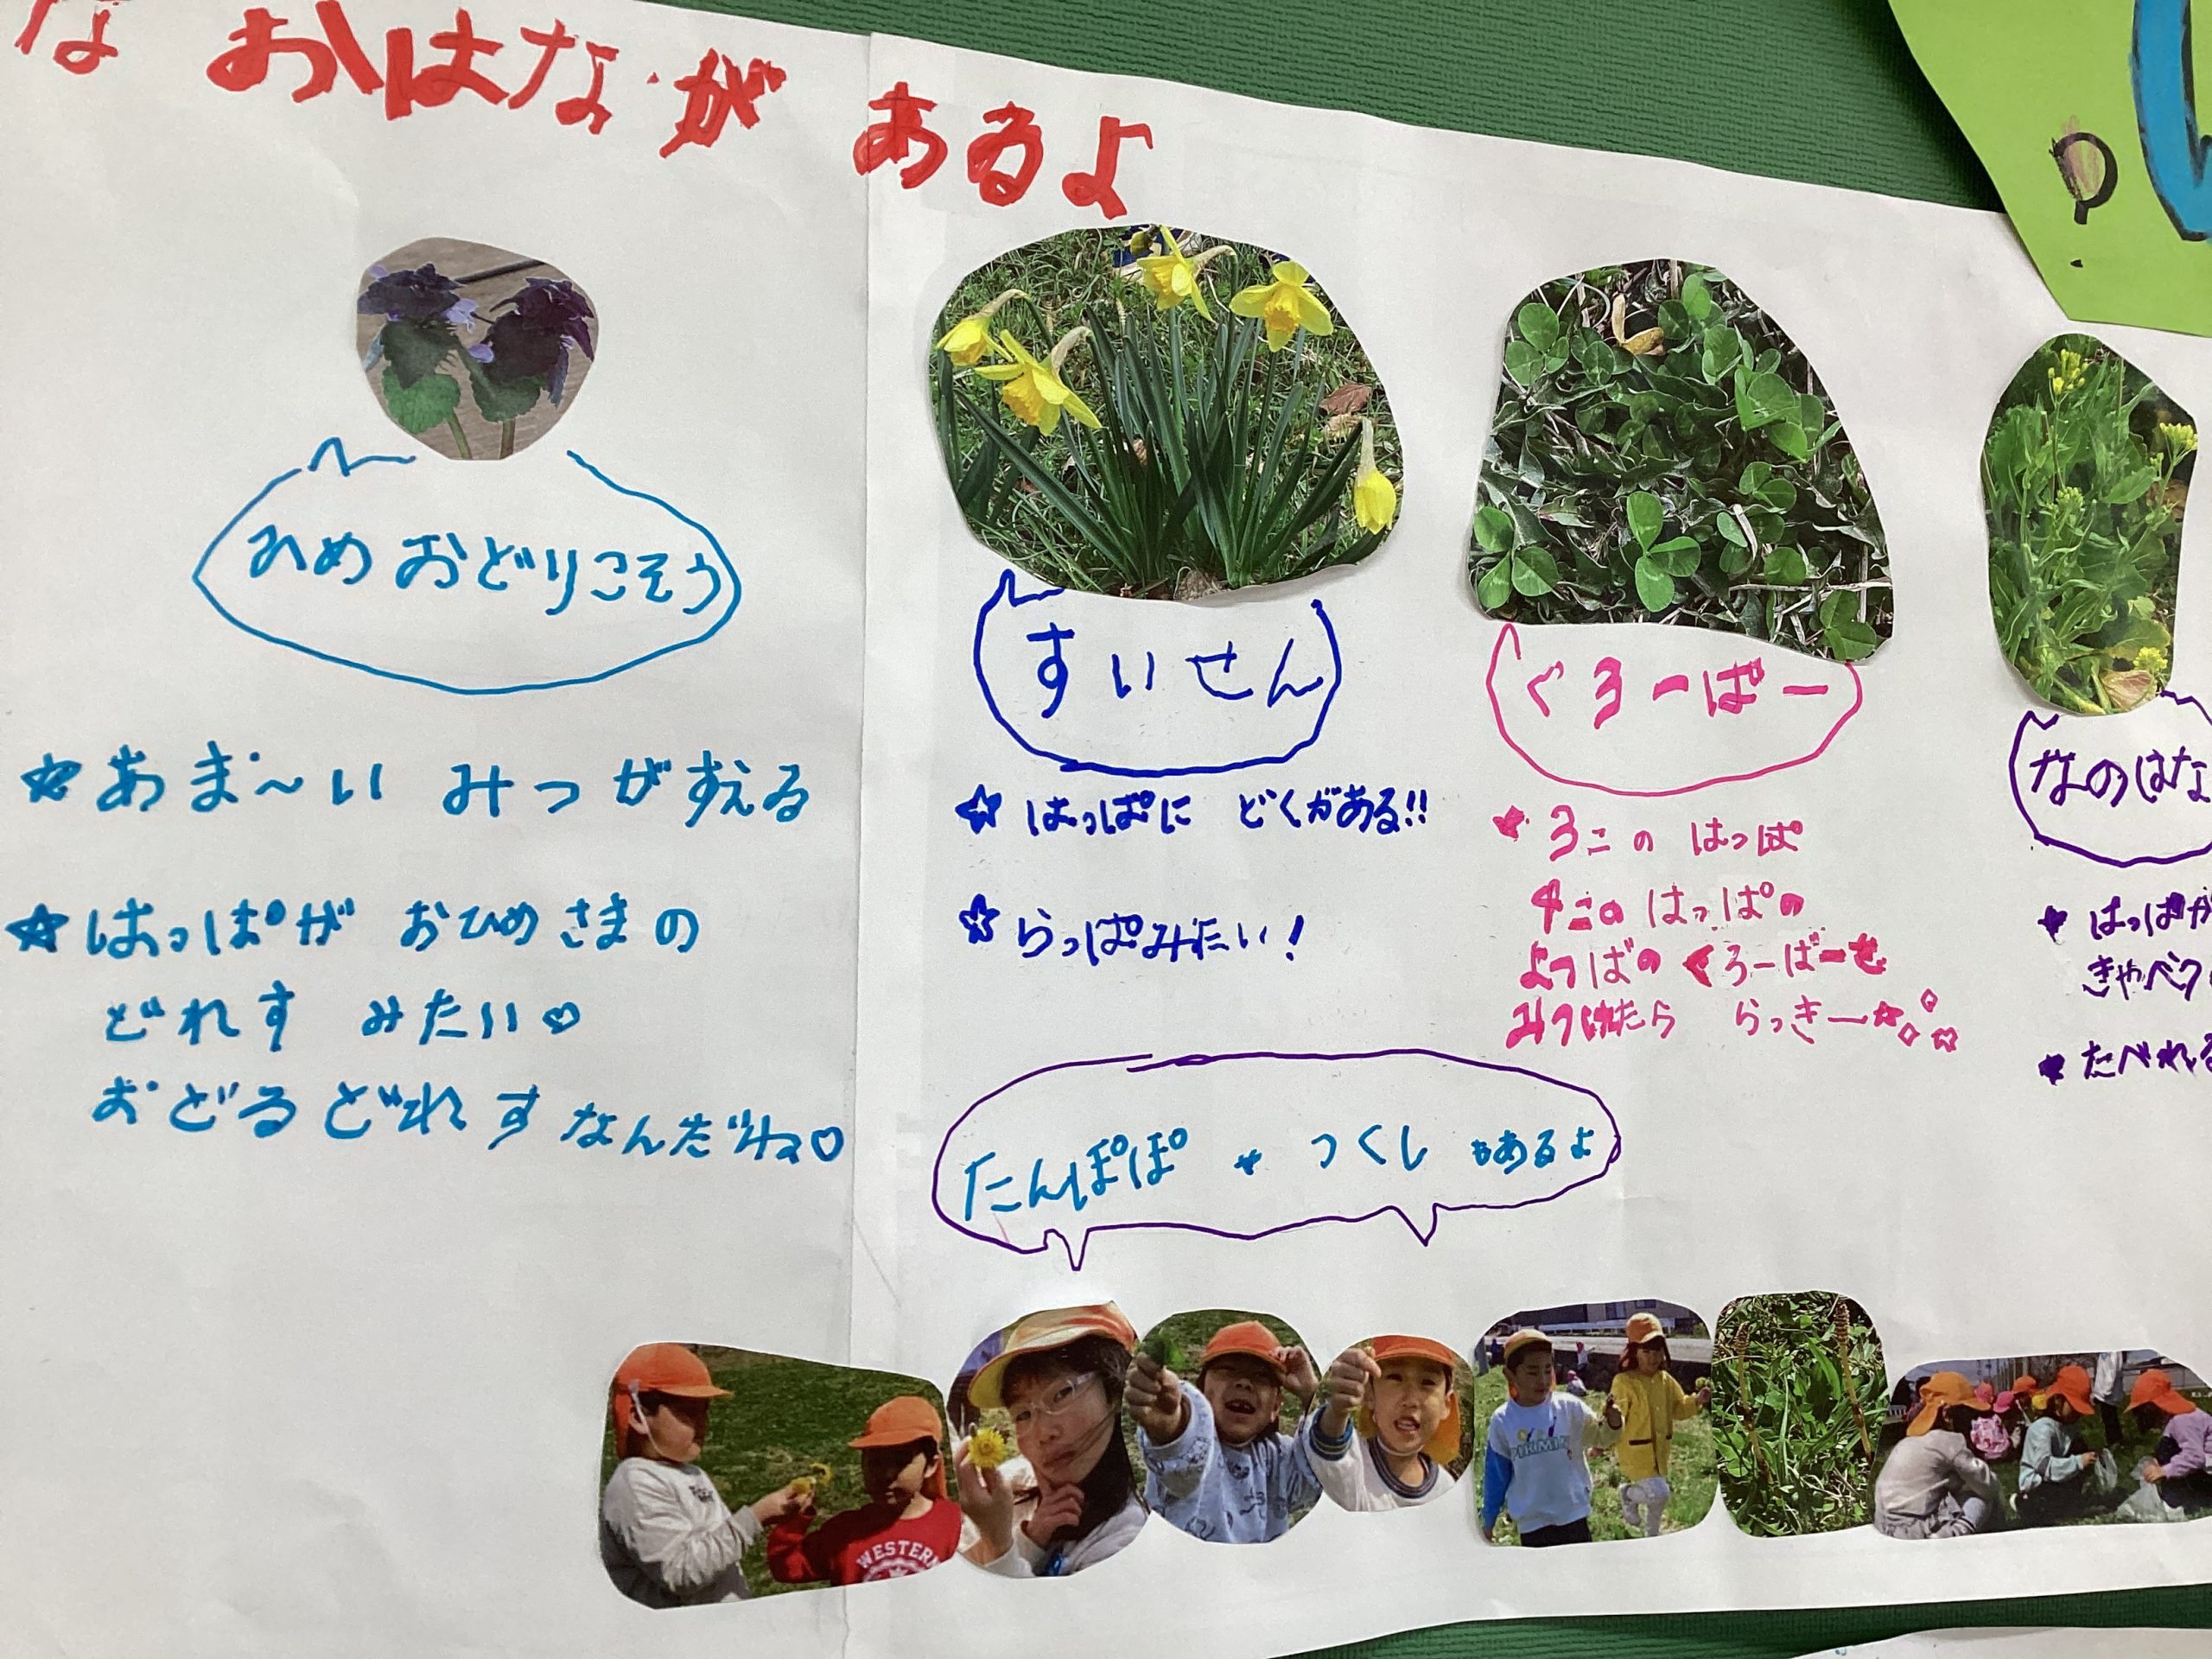 な おはなが あるよ
ひめおどりこそう
☆あま〜い みつがすえる
☆はっぱが おひめさまの
どれす みたい♡
おどるどれすなんだね♡
すいせん
☆はっぱに どくがある!!
☆らっぱみたい!
くろーばー
★3この はっぱ
4この はっぱの
よつばの くろーばーを
みつけたら らっきー☆
なのはな
★はっぱが
きゃべつ
★たべれる
たんぽぽ ★ つくし もあるよ
PIKMIN
WESTERN